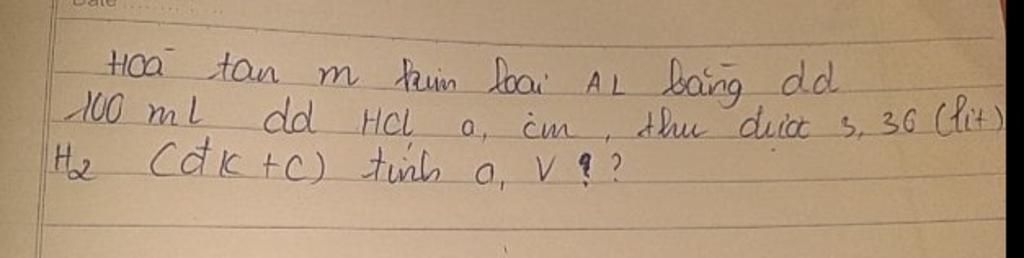 Hoà tan m kim loại AL bằng dd
100 ml dd HCl a, cm, thu được 3,36 (lit)
H2 (đk+c) tính a, V ??